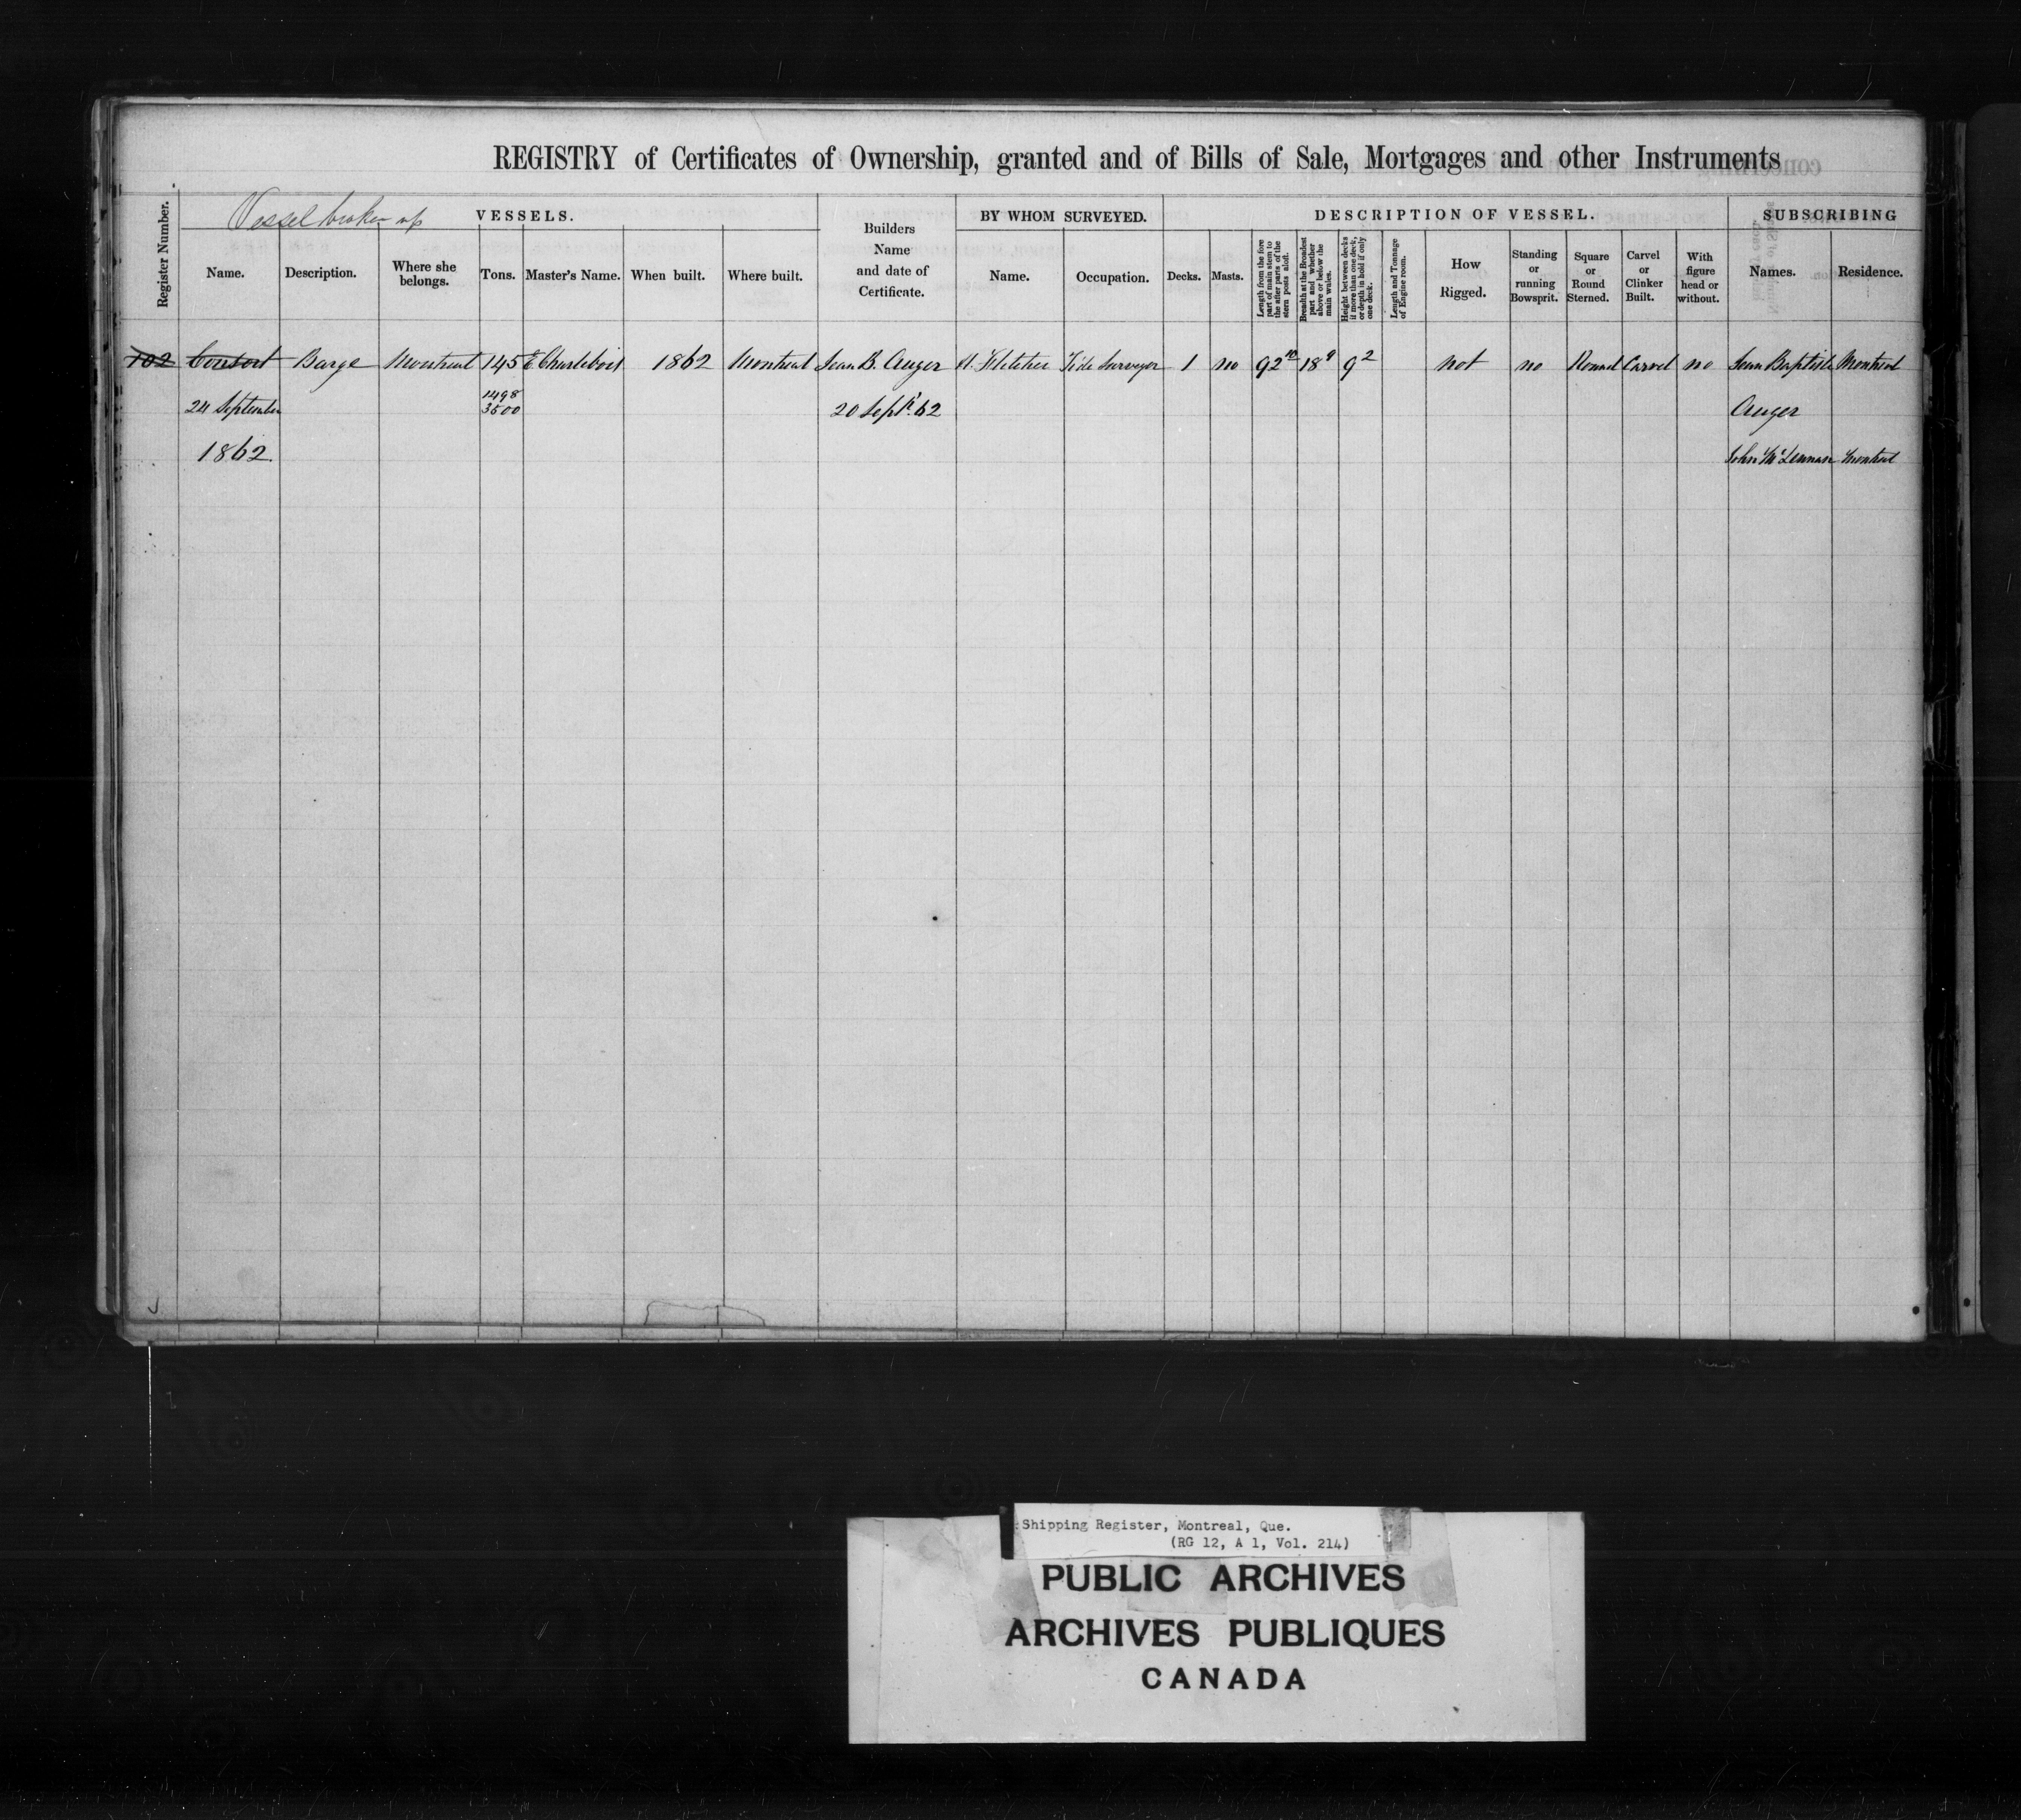 REGISTRY of Certificates of Ownership, granted and of Bills of Sale, Mortgages and other Instruments
Register Number.
Vessel broken up
VESSELS.
Builders Name and date of Certificate.
BY WHOM SURVEYED.
DESCRIPTION OF VESSEL.
SUBSCRIBING
Name. Description. Where she belongs. Tons. Master's Name. When built. Where built. Name. Occupation. Decks. Masts.
Length from the fore part of main stem to the after parts of the stern posts aloft.
Breadth at the Broadest part and whether above or below the main wales.
Height between decks if more than one deck, or depth in hold if only one deck.
Length and Tonnage of Engine room.
How Rigged.
Standing or running Bowsprit.
Square or Round Sterned.
Carvel or Clinker Built.
With figure head or without.
Names. Residence.
102 Consort Barge Montreal 145 E Charlebois 1862 Montreal Jean B. Auger Fletcher Tide Surveyor 1 no 92 10 18 9 9 2 not no Round Carvel no Jean Baptiste Montreal
24 September 1498 3500 20 Sept. 62 Auger
1862. John McLennan Montreal
Shipping Register, Montreal, Que.
(RG 12, A 1, Vol. 214)
PUBLIC ARCHIVES
ARCHIVES PUBLIQUES
CANADA